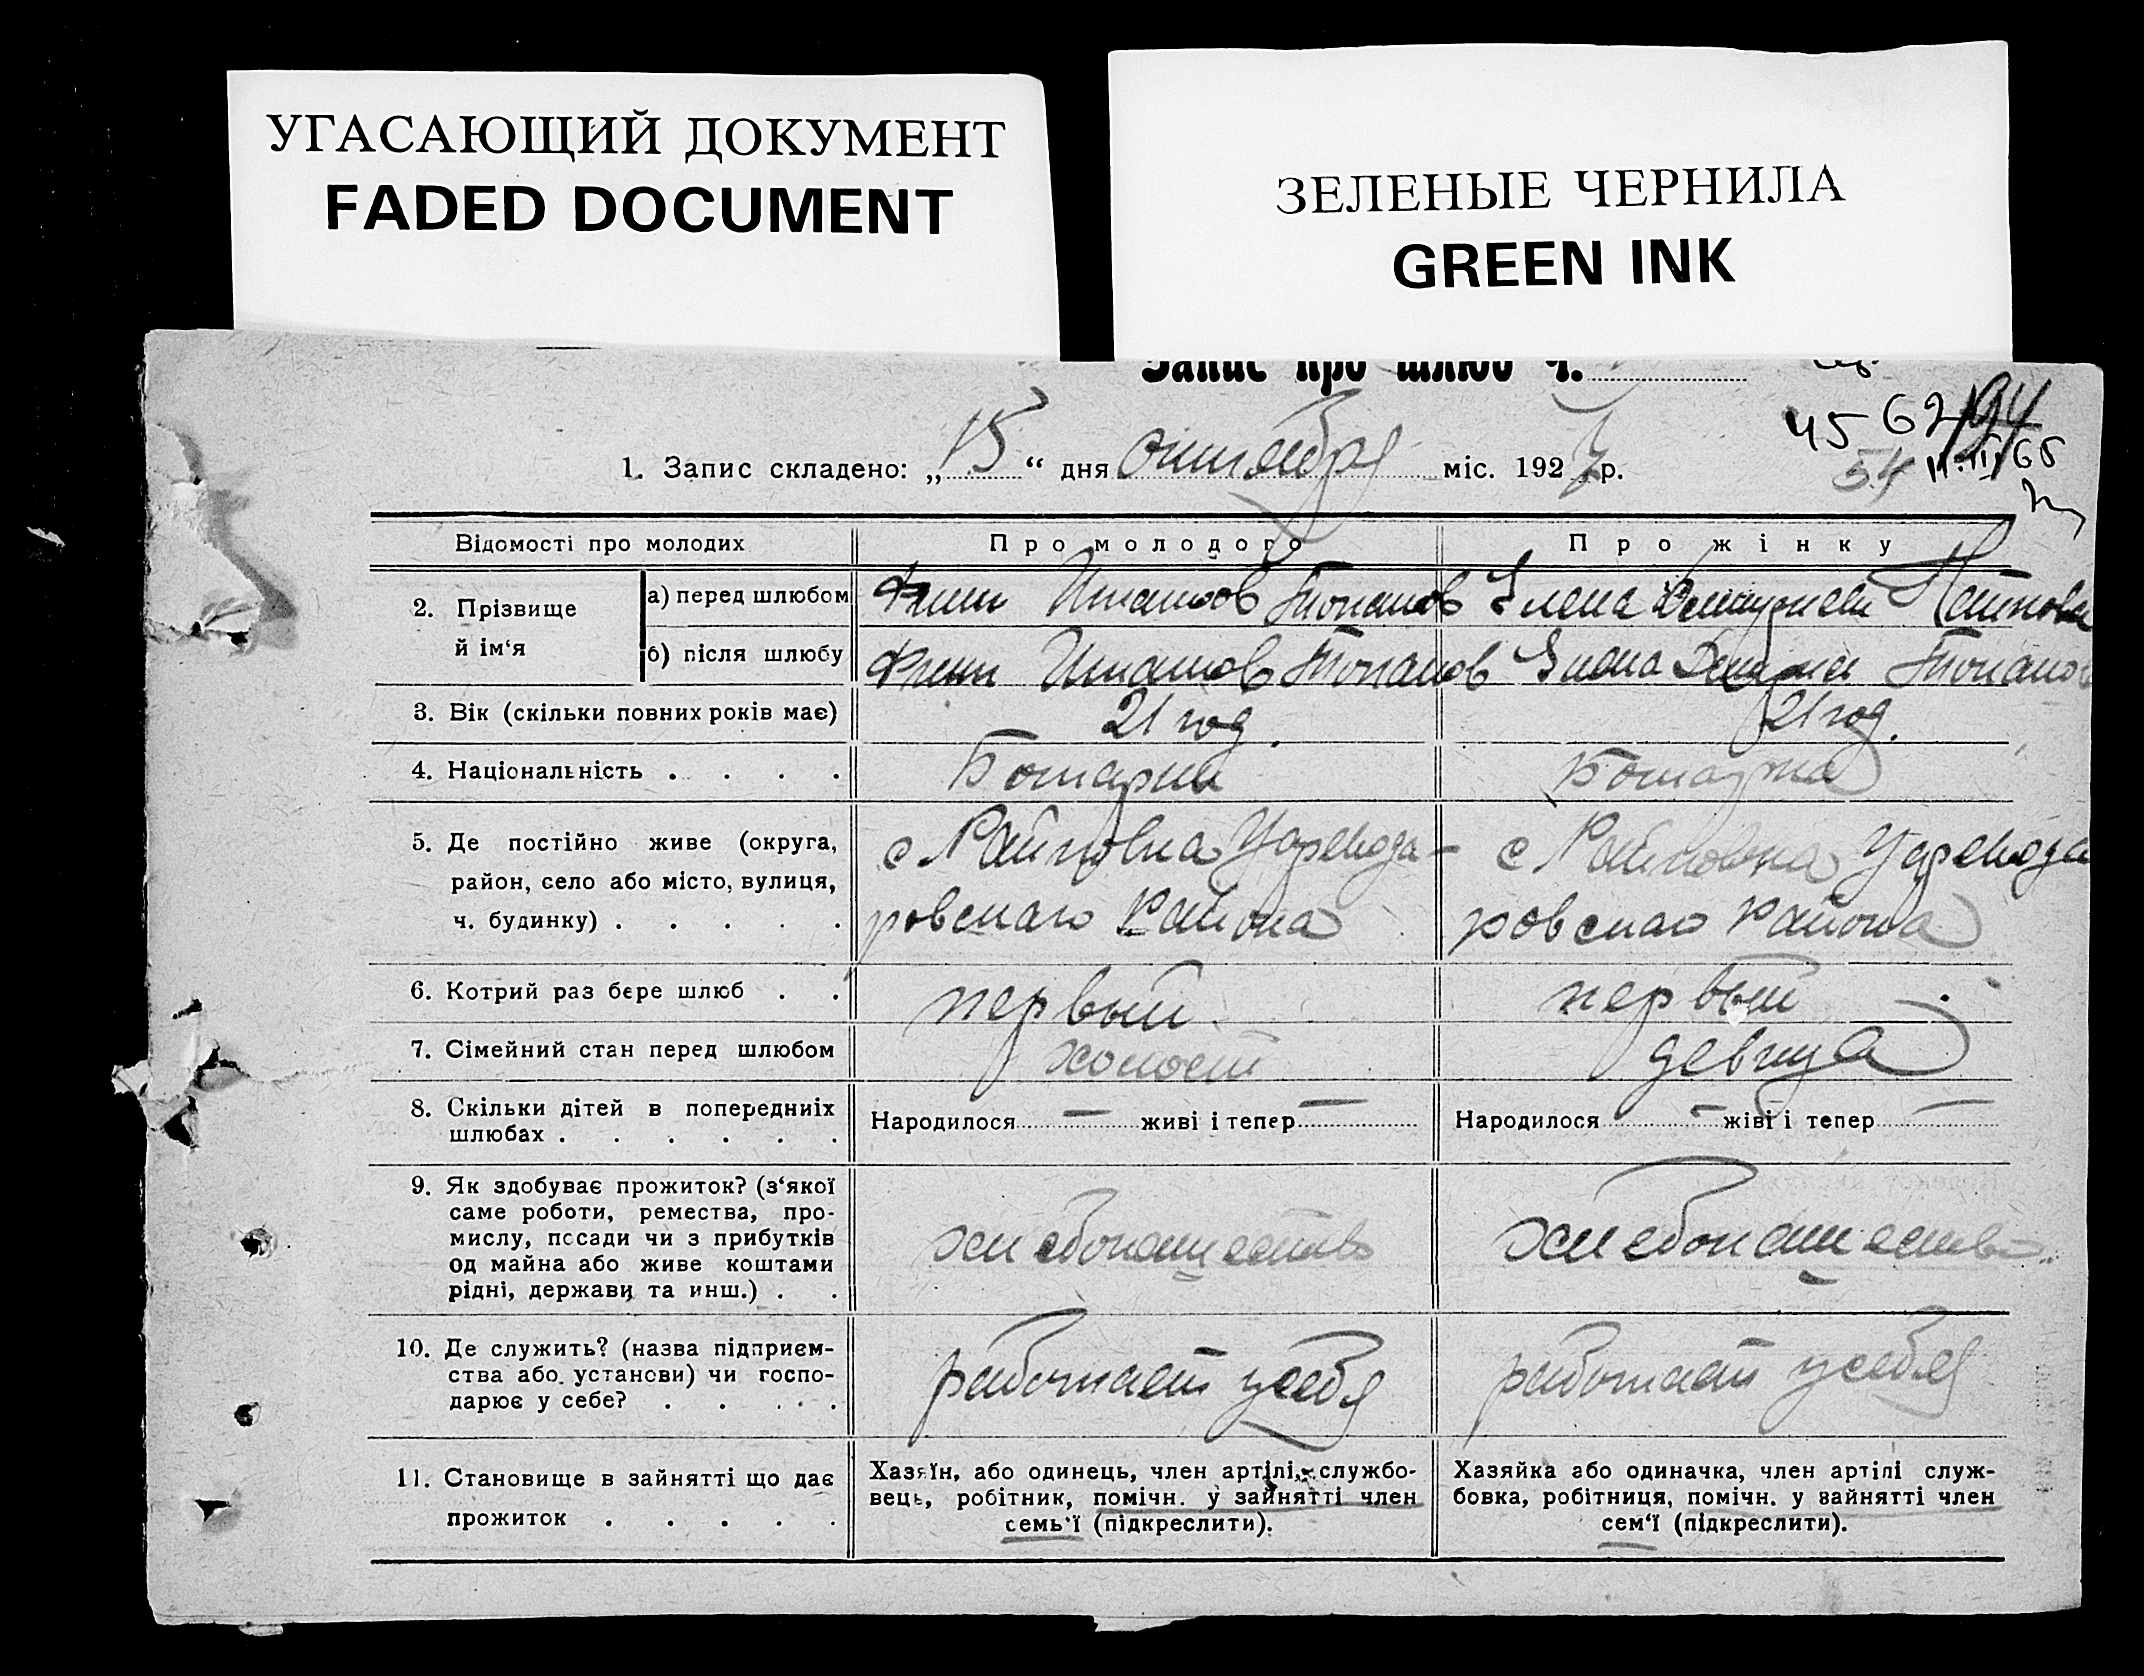 УГАСАЮЩИЙ ДОКУМЕНТ
FADED DOCUMENT
ЗЕЛЕНЫЕ ЧЕРНИЛА
GREEN INK
Запис про шлюб ч.
45 62 194
54 11.III 65
1. Запис складено: „15“ дня октября міс. 1927 р.
Відомості про молодих
Про молодого
Про жінку
2. Прізвище й ім‘я
а) перед шлюбом
Топалов
Елена
б) після шлюбу
Топалов
Елена Топалов
3. Вік (скільки повних років має)
21 год.
21 год.
4. Національність . . . .
Болгарин
Болгарка
5. Де постійно живе (округа,
район, село або місто, вулиця,
ч. будинку) . . . . .
с Райновка Царевода-
ровскаго Района
с Райновка Царевода
ровскаго Района
6. Котрий раз бере шлюб . .
первый
первый
7. Сімейний стан перед шлюбом
холост
девица
8. Скільки дітей в попередниіх
шлюбах . . . . . .
Народилося — живі і тепер —
Народилося — жіві і тепер —
9. Як здобуває прожиток? (з‘якої
саме роботи, ремества, про-
мислу, посади чи з прибутків
од майна або живе коштами
рідні, держави та инш.) . .
хлебопашество
хлебопашество
10. Де служить? (назва підприєм-
ства або установи) чи госпо-
дарює у себе? . . . . .
работает у себя
работает у себя
11. Становище в зайнятті що дає
прожиток . . . . .
Хазяїн, або одинець, член артілі, службо-
вець, робітник, помічн. у зайнятті член
семь‘ї (підкреслити).
Хазяйка або одиначка, член артілі служ-
бовка, робітниця, помічн. у зайнятті член
сем‘ї (підкреслити).